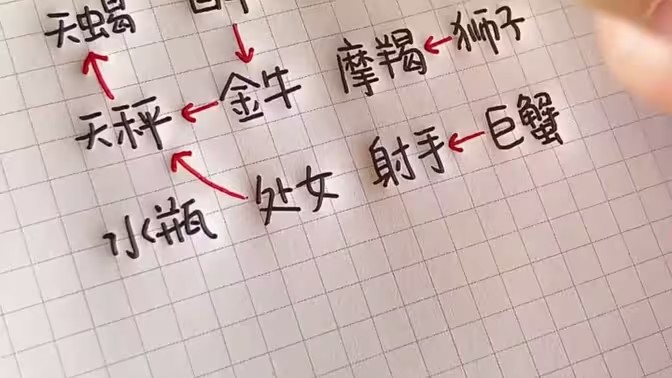 天蝎
摩羯 狮子
天秤 金牛
射手 巨蟹
水瓶 处女